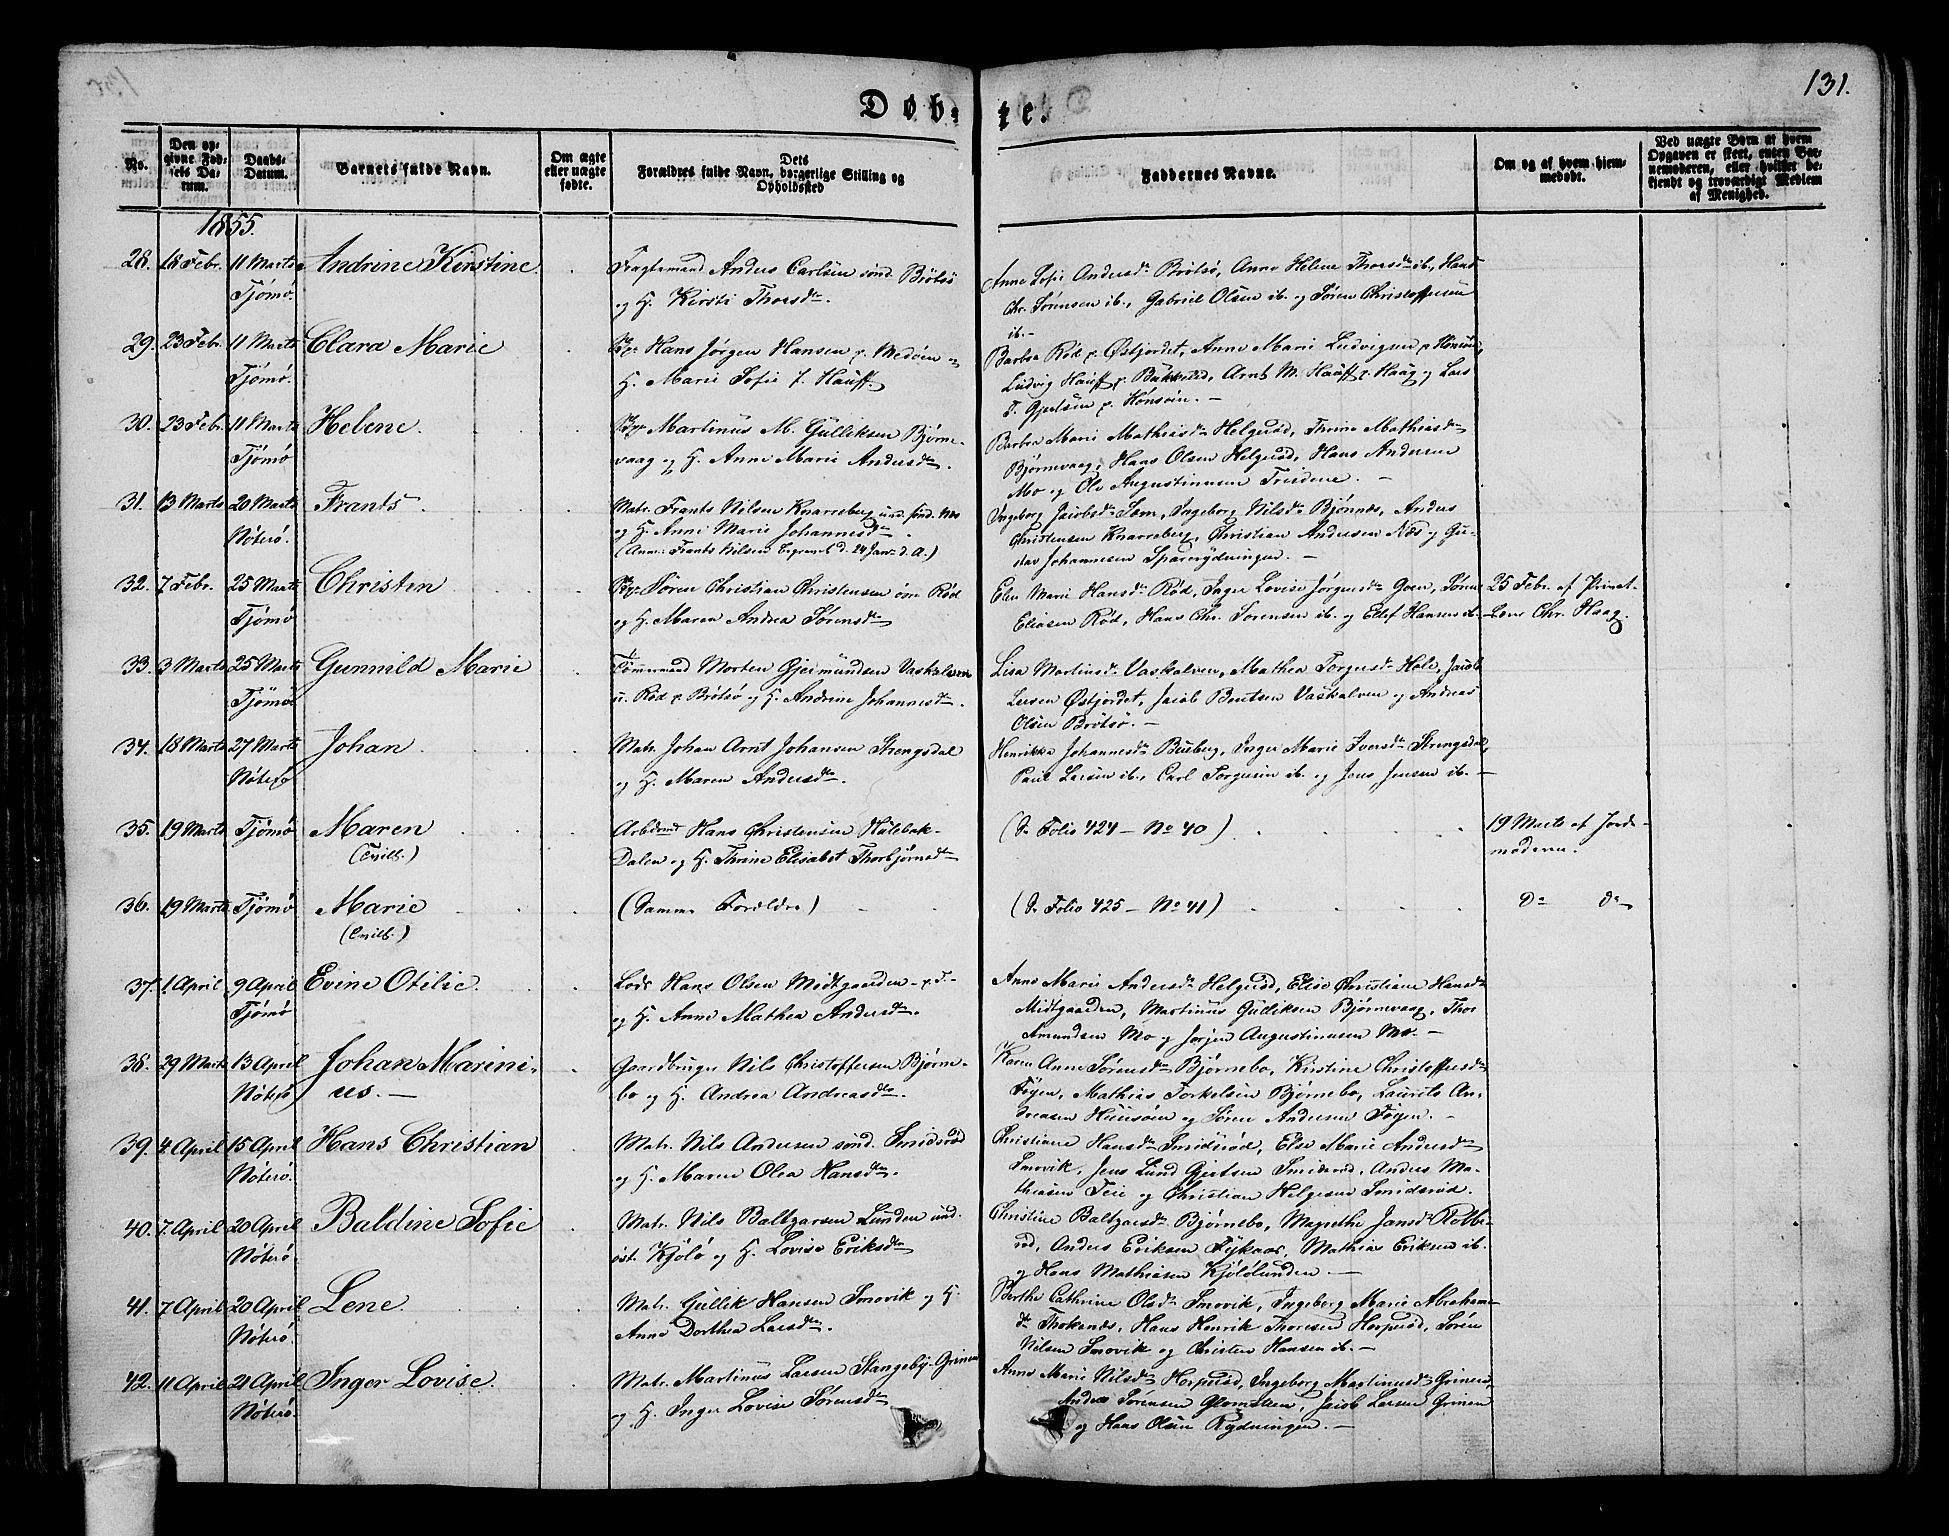 131.
Døbte.
No.
Den opgivne Fødsels Datum.
Daabs-Datum.
Barnets fulde Navn.
Om ægte eller uægte fødte.
Forældres fulde Navn, Dets borgerlige Stilling og Opholdssted
Faddernes Navne.
Om og af hvem hjemmedøbt.
Ved uægte Børn af hvem Opgaven er skeet, enten Barnemoderen, eller hvilket bekjendt og troværdigt Medlem af Menighed.
1855.
28. 18 Febr. 11 Marts Tjømø. Andrine Kirstine.
Fragtemand Anders Carlsen sönd. Brötsö
og H. Kirsti Thorsdtr.
Anne Sofie Andersdr Brötsö, Anne Helene Thorsdtr ib., Hans
Chr. Sørensen ib., Gabriel Olsen ib. og Søren Christoffersen
ib.
29. 23 Febr. 11 Marts Tjømø. Clara Marie
Hans Jørgen Hansen p. Medöen og
H. Marie Sofie f. Hauff.
Barbra Röd p. Østjordet, Anne Marie Ludvigsen p. Hönsöen,
Ludvig Hauff p. Bakkested, Arnt M. Hauff p. Haag og Lars
T. Gjertsen p. Hönsöen. —
30. 23 Febr. 11 Marts Tjømø Helene.
Martinus M. Gulliksen Bjørne-
vaag og H. Anne Marie Andersdtr.
Barbra Marie Mathiasdr Helgeröd, Thrine Mathiasdr
Bjørnevaag, Hans Olsen Helgeröd, Hans Andersen
Mo og Ole Augustinusen Treidene. —
31. 13 Marts 20 Marts Nöterö. Frants.
Matr. Frants Nilsen Knarreberg und. sönd. Næs
og H. Anne Marie Johannesdtr.
(Anm: Frants Nilsen begravet d. 24 Janr. d. A.)
Ingeborg Jacobsdr Sem, Ingeborg Nilsdr Bjønnes, Anders
Christensen Knarreberg, Christian Andersen Næs og Gu-
stav Johannesen Sparerydningen. —
32. 7 Febr. 25 Marts Tjømø Christen
Søren Christian Christensen övre Röd
og H. Maren Andrea Sørensdtr
Elen Marie Hansdr Röd, Inger Lovise Jørgensdtr Goen, Søren
Eliasen Röd, Hans Chr. Sørensen ib. og Edef Hansen ib.
25 Febr. af Privat-
Lære Chr. Haag.
33. 3 Marts 25 Marts Tjømø Gunnild Marie
Tömmermand Morten Gjermundsen Vaskalven
u. Röd p. Brötsö og H. Andrine Johannesdtr.
Lisa Martinsdr Vaskalven, Mathea Torgersdr Hole, Jacob
Larsen Østjordet, Jacob Bentsen Vaskalven og Andreas
Olsen Brötsö. —
34. 18 Marts 27 Marts Nöterö Johan
Matr. Johan Arnt Johansen Strengsdal
og H. Maren Andersdtr.
Henrikka Johannesdr Bueberg, Inger Marie Iversdr Strengsdal,
Paul Larsen ib., Carl Torgersen ib. og Jens Jensen ib. —
35. 19 Marts Tjømø Maren
(Tvilb.)
Arbdmd Hans Christensen Holebak-
Dalen og H. Thrine Elisabet Thorbjørnsdtr
(Se Folio 424 — No 40)
19 Marts af Jorde-
moderen.
36. 19 Marts Tjømø Marie
(Tvilb.)
(Samme Forældre)
(Se Folio 425 — No 41)
Do Do
37. 1 April 9 April Tjømø Evine Otilie.
Lods Hans Olsen Midtgaarden p. T.
og H. Anne Mathea Andersdtr.
Anne Marie Andersdr Helgeröd, Elise Christiane Hansdr
Midtgaarden, Martinus Guliksen Bjørnevaag, Thor
Amundsen Mo og Jørgen Augustinusen Mo. —
38. 29 Marts 13 April Nöterö Johan Marini-
us. —
Gaardbruger Nils Christoffersen Bjørne-
bo og H. Andrea Andreasdtr.
Karen Anne Sørensdr Bjørnebo, Kirstine Christoffersdr
Føgen, Mathias Torkelsen Bjørnebo, Laurits An-
dreasen Huusöen og Søren Andersen Føgen. —
39. 4 April 15 April Nöterö. Hans Christian
Matr. Nils Andersen sönd. Smidsröd
og H. Maren Olea Hansdtr.
Christiane Hansdr Smidsröd, Else Marie Andersdr
Smovik, Jens Lund Gjertsen Smidsröd, Anders Ma-
thiasen Teie og Christian Helgesen Smidsröd.
40. 7 April 20 April Nöterö. Baldine Sofie
Matr. Nils Baltzarsen Lunden und.
öst. Kjölö og H. Lovise Eriksdtr
Christine Baltzarsdr Bjørnebo, Magrethe Jansdr Rolbe-
röd, Anders Eriksen, Mathias Eriksen ib.
og Hans Mathiasen Kjölölunden. —
41. 7 April 20 April Nöterö. Lene.
Matr. Gullik Hansen Smovik og H.
Anne Dorthea Larsdtr.
Berthe Cathrine Olsdr Smovik, Ingeborg Marie Abrahams-
dr, Hans Henrik Thoresen Herperöd, Søren
Nilsen Smovik og Christen Hansen ib. —
42. 11 April 21 April Nöterö. Inger Lovise.
Matr. Martinus Larsen Stangeby-Grinen
og H. Inger Lovise Sørensdtr
Anne Marie Nilsdr Herperöd, Ingeborg Martinusdr Grinen,
Andreas Sørensen Glomsten, Jacob Larsen Grinen
og Hans Olsen Rydningen. —